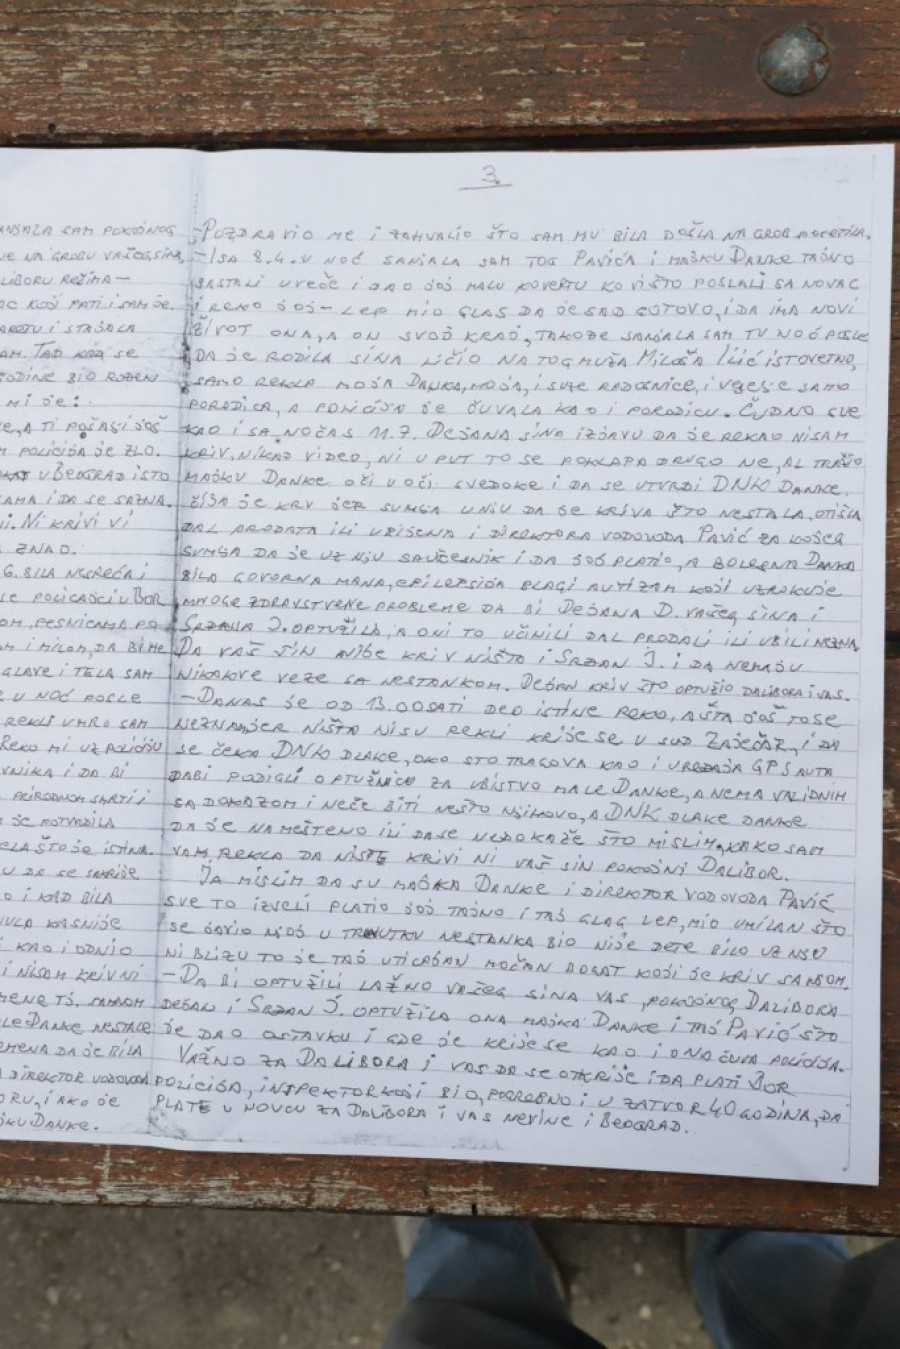 3.
ANJALA SAM POKOJNOG
JE NA GROBU VAŠEG SINA,
LIBORU REŽIMA –
KOJI PATI I SAM JE
I STAJALA
AM. TAD KAD SE
GODINE BIO ROĐEN
MI JE:
E, A TI POŠALJI JOŠ
M POLICIJA JE ZLO.
U BEOGRAD ISTO
AMA I DA SE SAZNA.
I. NI KRIVI VI
A ZNAO.
G. BILA NESREĆA I
SE POLICAJCI U BOR
OM, PESNICAMA PO
M I MILOM, DA BI ME
GLAVE I TELA SAM
E U NOĆ POSLE
REKLI UMRO SAM
REKO MI UZ POLICIJU
VNIKA I DA BI
PRIRODNOM SMRTI I
A JE POTVRDILA
ELA ŠTO JE ISTINA.
U DA SE SAKRIJE
O I KAD BILA
KASNIJE
I KAO I ODNIO
I NISAM KRIV NI
MENE TÓ, SAMNOM
LE DANKE NESTALE
EMENA DA JE BILA
A DIREKTOR VODOVODA
ORU, I AKO JE
JKU DANKE.
– POZDRAVIO ME I ZAHVALIO ŠTO SAM MU BILA DOŠLA NA GROB POSETILA.
– I SA 8.4. U NOĆ SANJALA SAM TOG PAVIĆA I MAJKU DANKE TAJNO
SASTALI UVEČE I DAO JOŠ MALU KOVERTU KO VIŠTO POSLALI SA NOVAC
I REKO JOŠ – LEP MIO GLAS DA JE SAD GOTOVO, I DA IMA NOVI
ŽIVOT ONA, A ON SVOJ KRAJ, TAKOĐE SANJALA SAM TU NOĆ POSLE
DA JE RODILA SINA LIČIO NA TOG MUŽA MILOŠA ILIĆ ISTOVETNO,
SAMO REKLA MOJA DANKA, MOJA, I SUZE RADOSNICE, I VESELJE SAMO
PORODICA, A POLICIJA JE ČUVALA KAO I PORODICU. ČUDNO SVE
KAO I SA NOĆAS 11.7. DEJANA SINA IZJAVU DA JE REKAO NISAM
KRIV, NIKAD VIDEO, NI U PUT TO SE POKLAPA DRUGO NE, AL TRAŽIO
MAJKU DANKE OČI U OČI SVEDOKE I DA SE UTVRDI DNK DANKE.
ČIJA JE KRV JER SUMLJA U NJU DA JE KRIVA ŠTO NESTALA, OTIŠLA
DAL PRODATA ILI UBIJENA I DIREKTORA VODOVODA PAVIĆ ZA KOJEG
SUMLJA DA JE UZ NJU SAUČESNIK I DA JOŠ PLATIO, A BOLESNA DANKA
BILA GOVORNA MANA, EPILEPSIJA BLAGI AUTIZAM KOJI UZROKUJE
MNOGE ZDRAVSTVENE PROBLEME DA BI DEJANA D. VAŠEG SINA I
SRĐANA J. OPTUŽILA, A ONI TO UČINILI DAL PRODALI ILI UBILI NEZNA
DA VAŠ SIN NIJE KRIV NIŠTO I SRĐAN J. I DA NEMAJU
NIKAKVE VEZE SA NESTANKOM. DEJAN KRIV ŠTO OPTUŽIO DALIBORA I VAS.
– DANAS JE OD 13.00 SATI DEO ISTINE REKO, A ŠTA JOŠ TO SE
NEZNA JER NIŠTA NISU REKLI KRIJE SE U SUD ZAJEČAR, I DA
SE ČEKA DNK DLAKE, OKO STO TRAGOVA KAO I UREĐAJA GPS AUTA
DA BI PODIGLI OPTUŽNICU ZA UBISTVO MALE DANKE, A NEMA VALIDNIH
SA DOKAZOM I NEĆE BITI NEŠTO NJIHOVO, A DNK DLAKE DANKE
DA JE NAMEŠTENO ILI DA SE NEDOKAŽE ŠTO MISLIM, KAKO SAM
VAM REKLA DA NISTE KRIVI NI VAŠ SIN POKOJNI DALIBOR.
JA MISLIM DA SU MAJKA DANKE I DIREKTOR VODOVODA PAVIĆ
SVE TO IZVELI PLATIO JOŠ TAJNO I TAJ GLAS LEP, MIO UMILAN ŠTO
SE JAVIO NJOJ U TRENUTKU NESTANKA BIO NIJE DETE BILO UZ NJU
NI BLIZU TO JE TAJ UTICAJAN MOĆAN BOGAT KOJI JE KRIV SA NJOM.
– DA BI OPTUŽILI LAŽNO VAŠEG SINA VAS, POKOJNOG DALIBORA
DEJAN I SRĐAN J. OPTUŽILA ONA MAJKA DANKE I TAJ PAVIĆ ŠTO
JE DAO OSTAVKU I GDE JE KRIJE SE KAO I ONA ČUVA POLICIJA.
VAŽNO ZA DALIBORA I VAS DA SE OTKRIJE I DA PLATI BOR
POLICIJA, INSPEKTOR KOJI BIO, POTREBNO I U ZATVOR 40 GODINA, DA
PLATE U NOVCU ZA DALIBORA I VAS NEVINE I BEOGRAD.